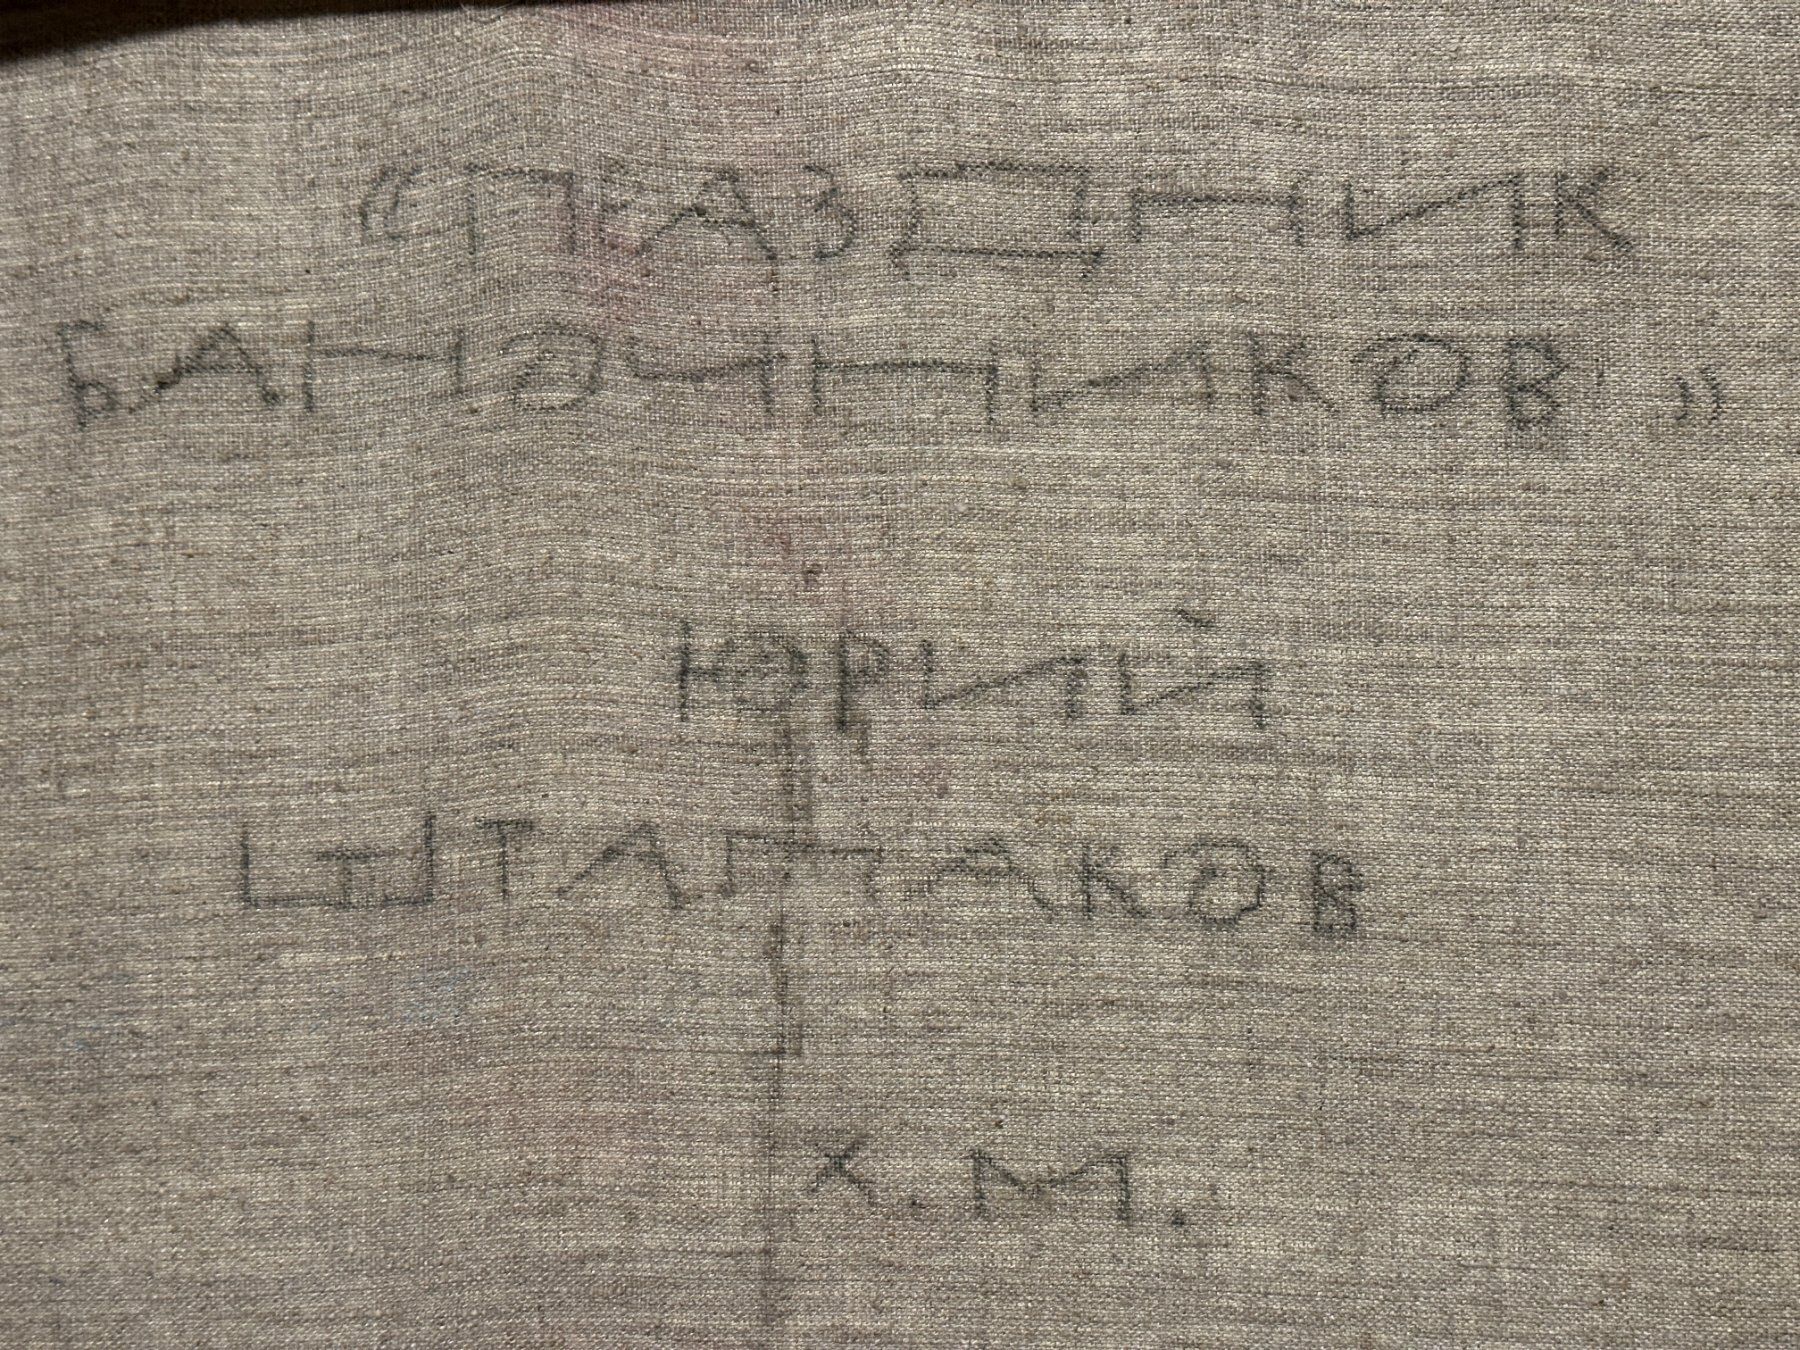 “ПРАЗДНИК
БАНОЧНИКОВ”
ЮРИЙ
ШТАПАКОВ
Х.М.